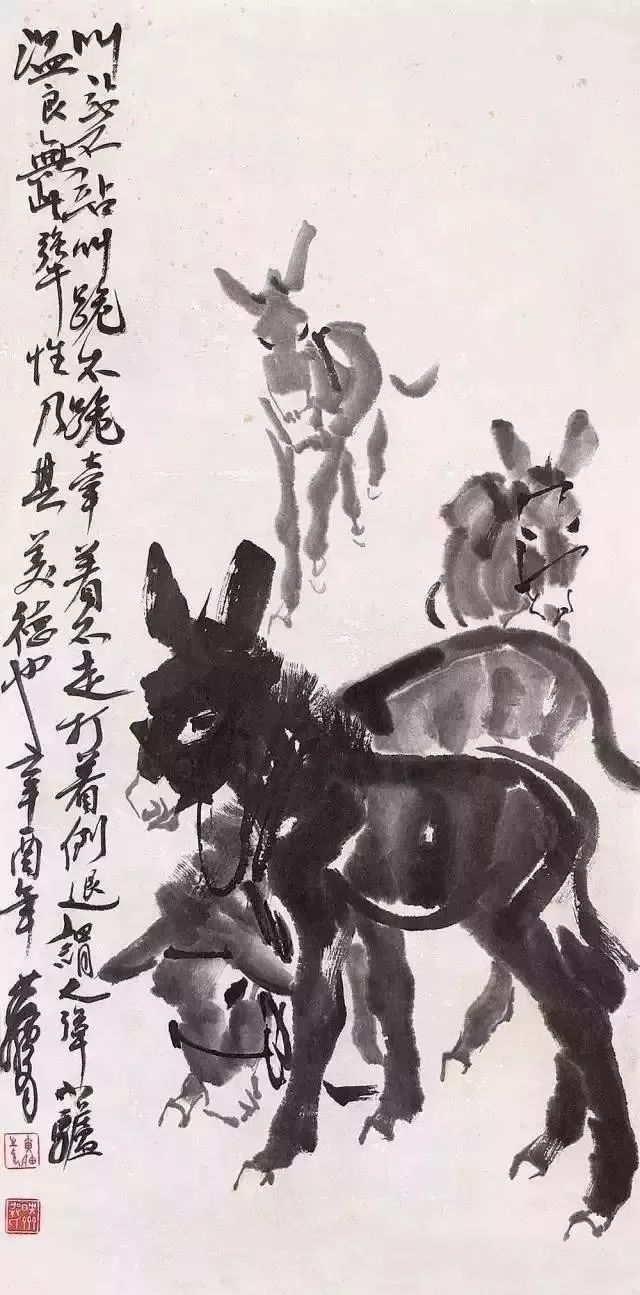 叫站不站叫跪不跪牽着不走打着倒退謂之犟小驢
溫良無此犟性乃其美德也辛酉年黃胄